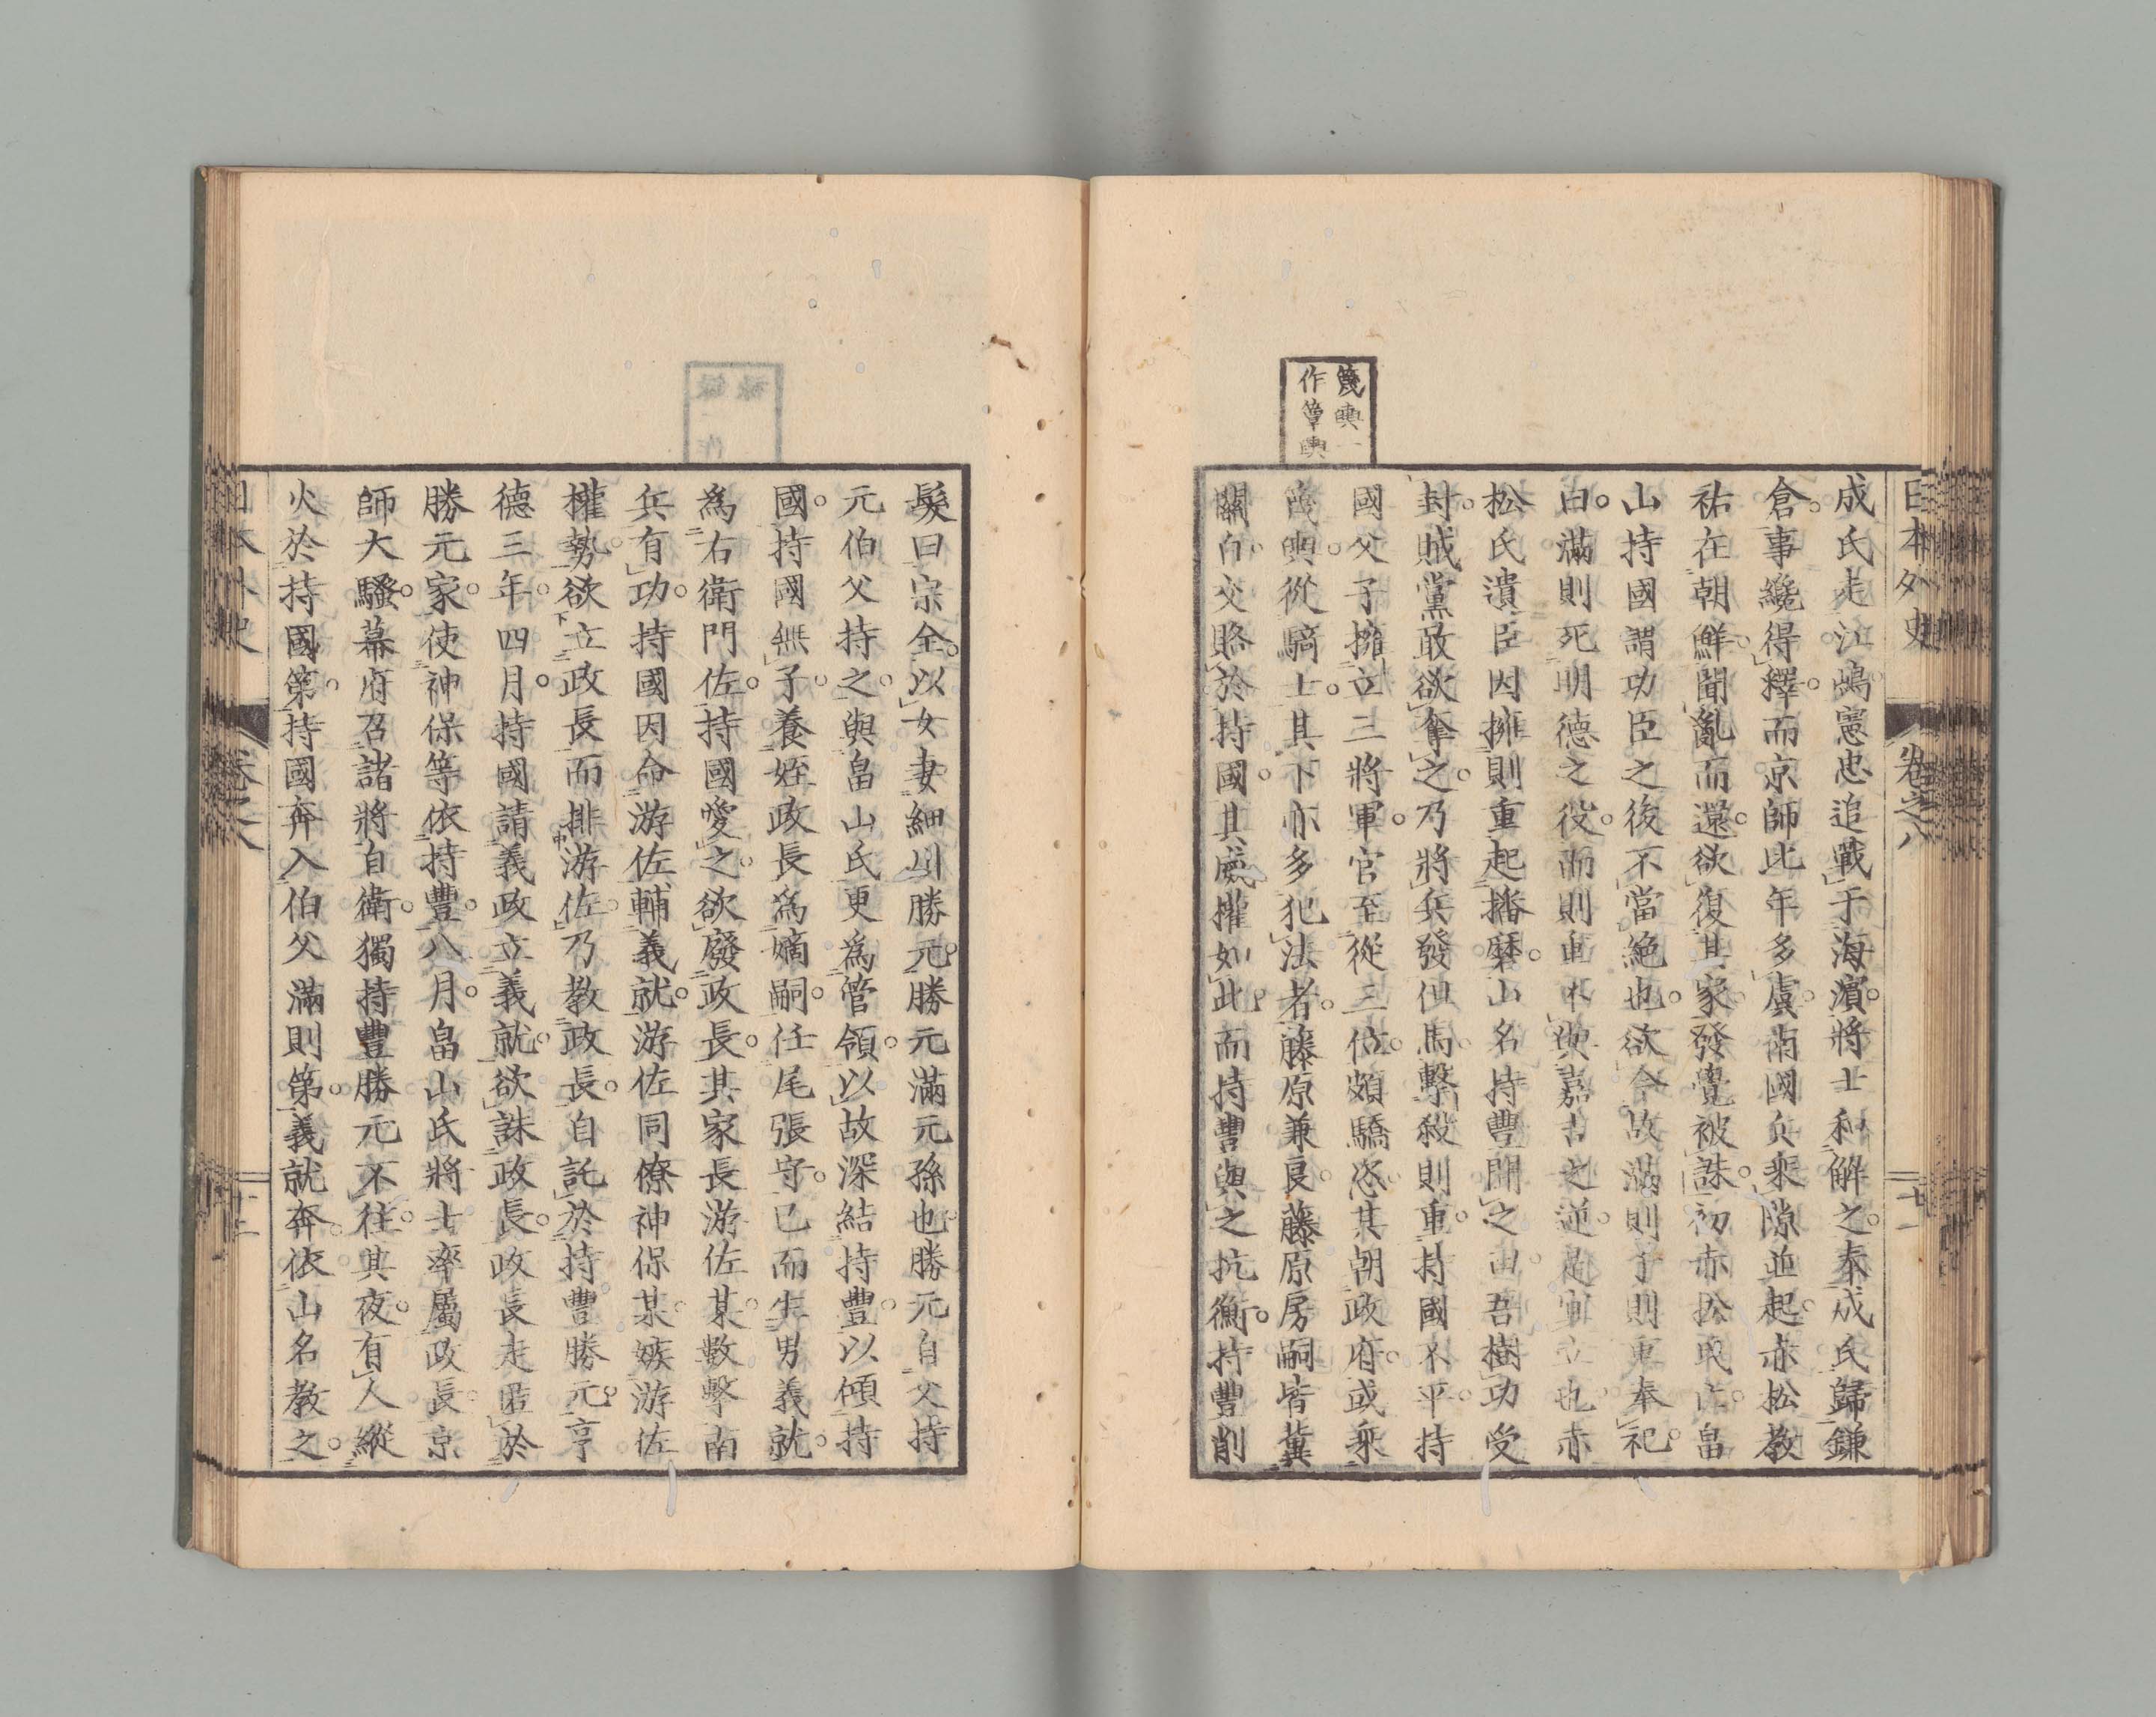 日本外史
卷之八
篾輿一
作箄輿
成氏走江嶋憲忠追戰于海濱。將士和解之。奉成氏歸鎌
倉。事纔得釋。而京師比年多虞。南國兵乘隙並起。赤松教
祐在朝鮮。聞亂而還。欲復其家。發覺被誅。初赤松氏亡。畠
山持國謂功臣之後不當絶也。欲令故滿則子則重奉祀。
曰。滿則死明德之役。而則重不與嘉吉之逆。
松氏潰臣因擁則重起播磨。山名持豐聞之曰。吾樹功受
封。賊黨敢欲奪之。乃將兵發但馬。擊殺則重。持國不平。持
國父子擁立三將軍。官至從三位。頗驕恣。其朝政府。或乘
篾輿。從騎士。其下亦多犯法者。藤原兼良。藤原房嗣皆冀
關白。交賂於持國。其威權如此。而持豐與之抗衡。持豐削
髮曰宗全。以女妻細川勝元。勝元滿元孫也。勝元自父持
元伯父持之。與畠山氏更爲管領。以故深結持豐。以傾持
國。持國無子。養姪政長爲嫡嗣。任尾張守。已而生男義就。
爲右衛門佐。持國愛之。欲廢政長。其家長游佐某。數擊南
兵有功。持國因命游佐輔義就。游佐同僚神保某。嫉游佐
權勢。欲立政長而排游佐。乃教政長。自託於持豐勝元。亨
德三年。四月。持國請義政立義就。欲誅政長。政長走匿於
勝元家。使神保等依持豐。八月。畠山氏將士率屬政長。京
師大騷。幕府召諸將自衛。獨持豐勝元不往。其夜。有人縱
火於持國第。持國奔入伯父滿則第。義就奔。依山名教之。
日本外史
卷之八